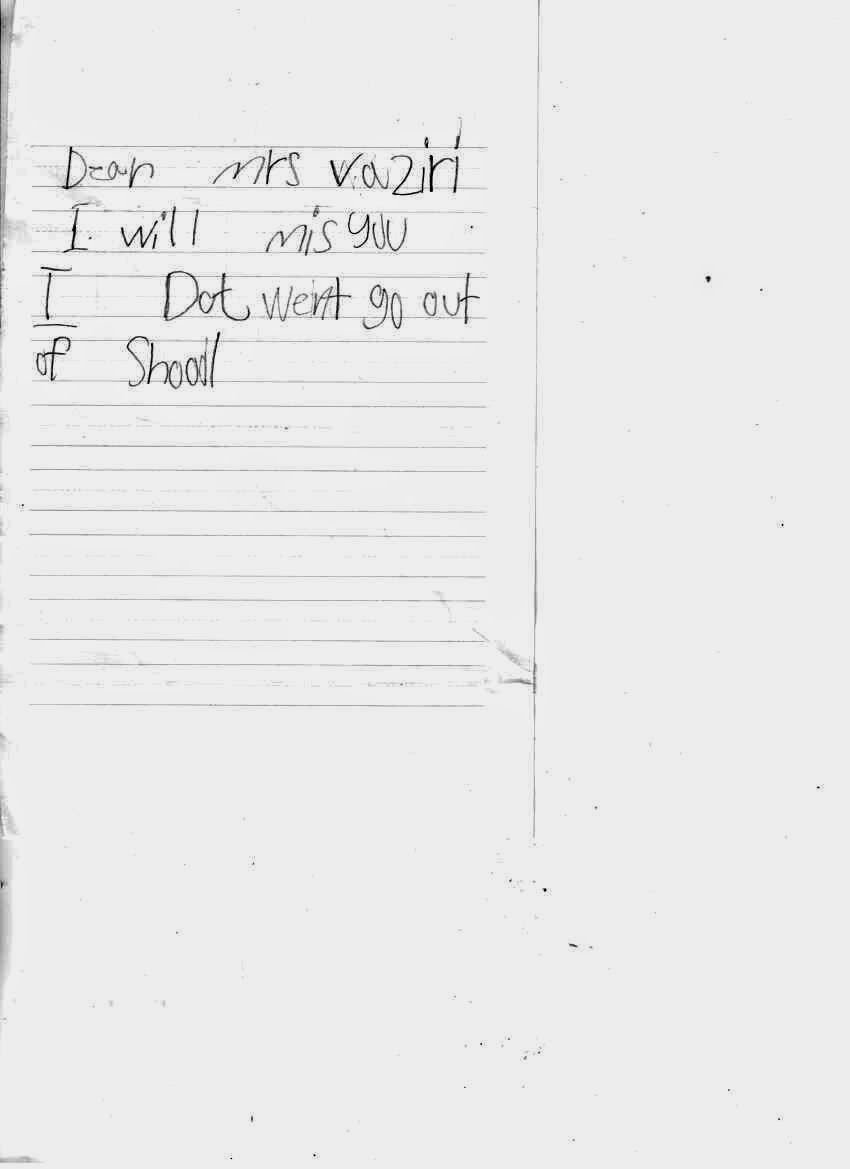 Dear mrs vaziri
I will mis you
I Dot went go out
of Shoodl